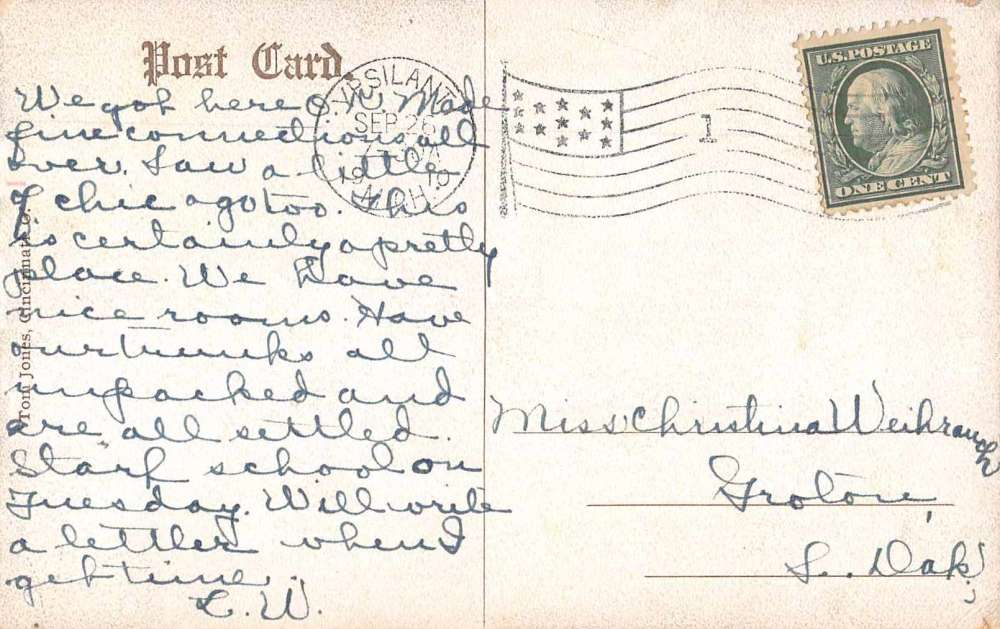 Post Card.
We got here O.K. Made
fine connections all
over. Saw a little
of chicago too. This
is certainly a pretty
place. We have
nice rooms. Have
our trunks all
unpacked and
are all settled.
Start school on
Tuesday. Will write
a letter when I
get time.
L. W.
Tom Jones, Cincinnati, O.
YPSILANTI
SEP 26
1910
MICH.
1
U.S. POSTAGE
ONE CENT
Miss Christina Weihrauch
Groton,
S. Dak.